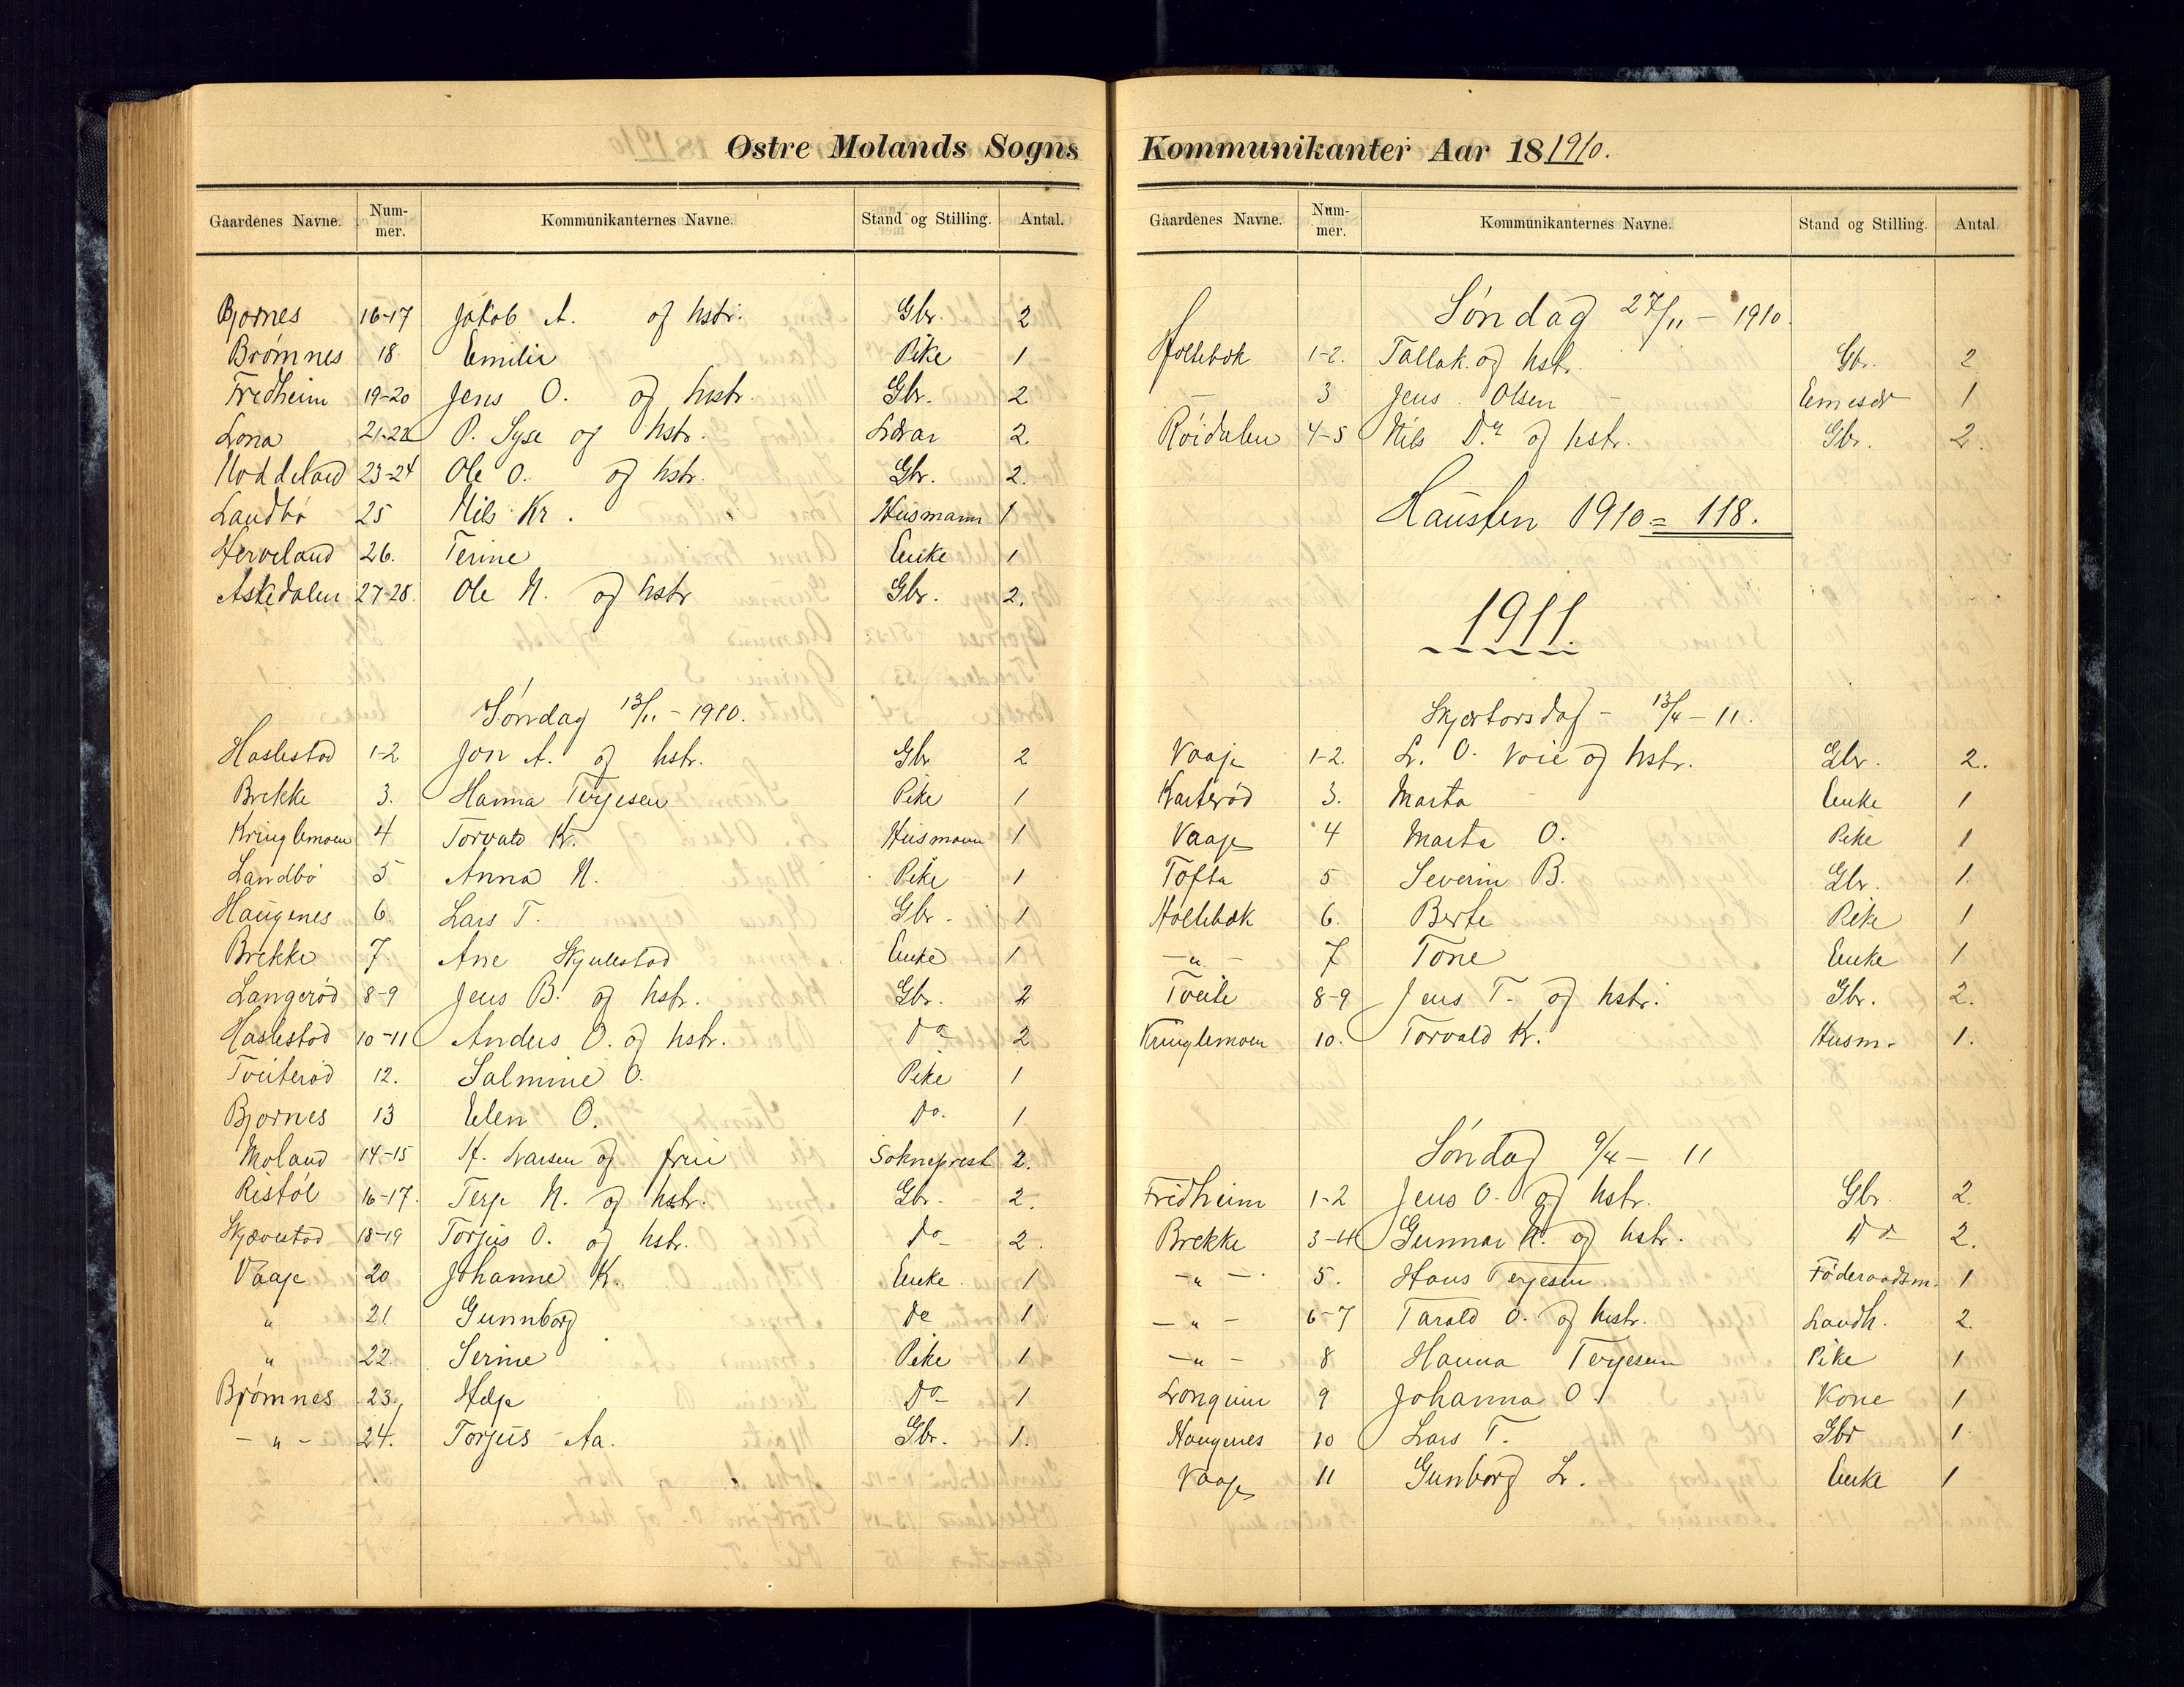 Østre Molands Sogns
Gaardenes Navne. Num-mer. Kommunikanternes Navne. Stand og Stilling. Antal.
Bjornes 16-17 Jakob A. og hstr. Gbr. 2
Brømnes 18 Emilie Pike 1
Fredheim 19-20 Jens O. og hustr. Gbr. 2
Lona 21-22 P. Syse og hstr. Lærar 2
Noddeland 23-24 Ole O. og hstr. Gbr. 2.
Landbø 25 Nils Kr. Husmann 1
Herveland 26. Terine Enke 1
Askedalen 27-28. Ole N. og hstr Gbr. 2.
Søndag 13/11 - 1910.
Haslestad 1-2 Jon A. og hstr. Gbr 2
Brekke 3. Hanna Terjesen Pike 1
Kringlemoen 4 Torvald Kr. Husmann 1
Landbø 5 Anna N. Pike 1
Haugenes 6. Lars T. Gbr. 1
Brekke 7. Ane Skjulestad Enke 1
Langerød 8-9 Jens B. og hstr. Gbr. 2
Haslestad 10-11 Anders O. og hstr. Do 2
Tveiterød 12. Salmine O. Pike 1
Bjornes 13 Elen O. Do. 1
Moland 14-15 H. Larsen og frue Sokneprest 2.
Ristøl 16-17. Terje N. og hstr. Gbr. 2.
Skjævestad 18-19 Torjus O. og hstr. Do 2.
Vaaje 20 Johanne K. Enke. 1
" 21 Gunnborg Do 1
" 22. Serine Pike 1
Brømnes 23. Helje Do 1
- " - 24. Torjus Aa. Gbr. 1.
Kommunikanter Aar 18 1910.
Gaardenes Navne. Num-mer. Kommunikanternes Navne. Stand og Stilling. Antal.
Søndag 27/11 - 1910.
Holtebæk 1-2. Tallak. og hstr. Gbr. 2
- 3 Jens Olsen - 1
Røidalen 4-5 Nils D. og hstr. Gbr. 2.
Hausten 1910 = 118.
1911.
Skjærtorsdag - 13/4 - 11.
Vaaje 1-2. L. O. Voie og hstr. Gbr. 2.
Karterød 3. Marta Enke 1
Vaaje 4 Marta O. Pike 1
Tofta 5 Severin B. Gbr. 1.
Holtebæk 6. Berte Pike 1
- " - 7 Tone Enke 1
Tveite 8-9 Jens T. og hstr. Gbr. 2.
Kringlemoen 10. Torvald Kr. Husm. 1.
Søndag 9/4 - 11
Fridheim 1-2 Jens O. og hstr. Gbr. 2.
Brekke 3-4 Gunnar N. og hstr. Do 2.
- " - 5. Hans Terjesen Føderaadsm. 1
- " - 6-7 Tarald O. og hustr. Landh. 2.
- " - 8 Hanna Terjesen Pike 1
9 Johanna O. Kone 1
Haugenes 10 Lars T. Gbr 1
Vaaje 11 Gunborg L. Enke 1